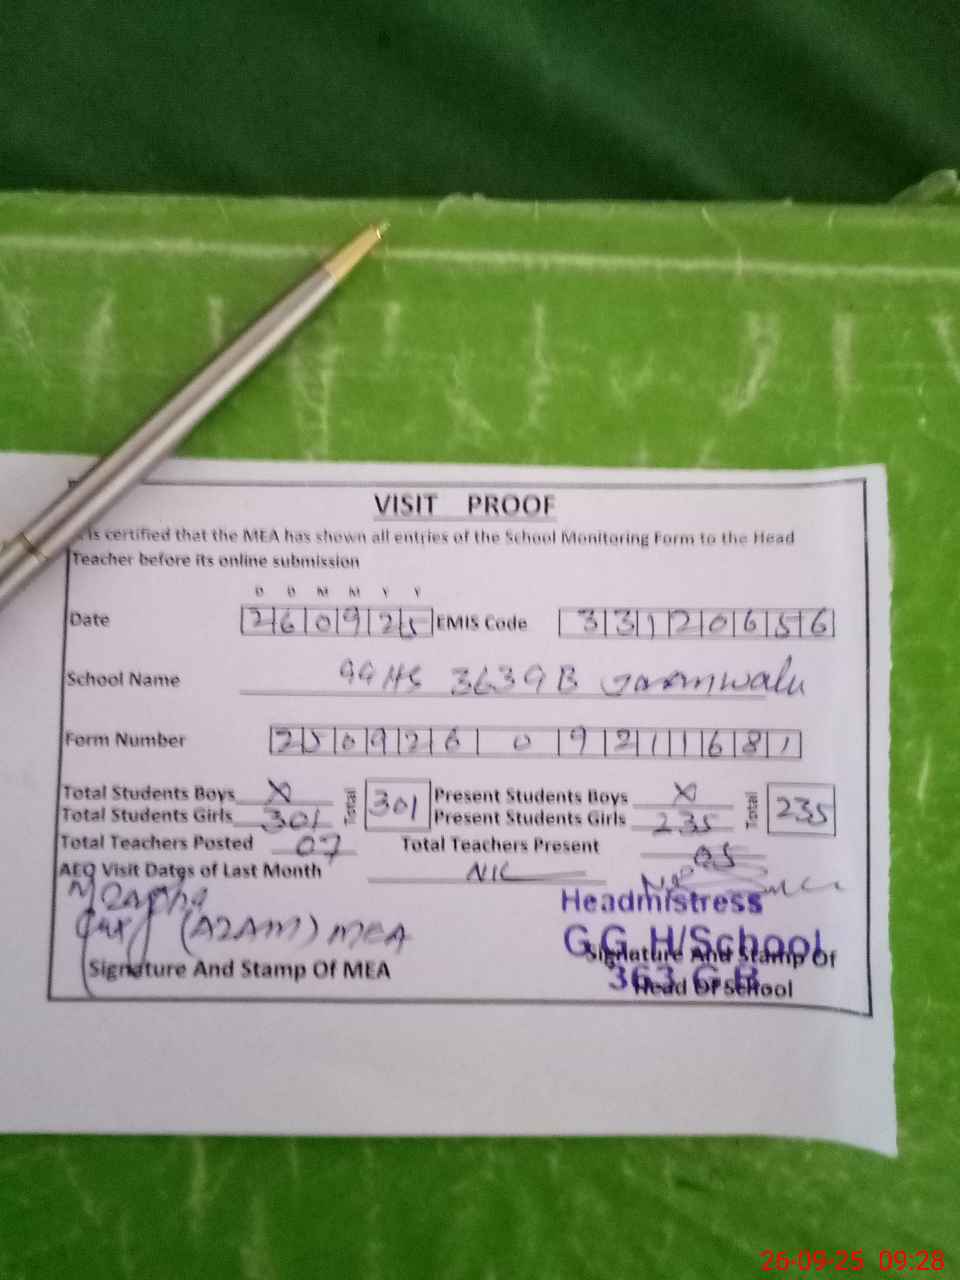 VISIT PROOF
is certified that the MEA has shown all entries of the School Monitoring Form to the Head
Teacher before its online submission
D D M M Y Y
Date 260925 EMIS Code 33120656
School Name GGHS 363 GB
Form Number 25092609211681
Total Students Boys X Total 301 Present Students Boys X Total 235
Total Students Girls 301 Present Students Girls 235
Total Teachers Posted 07 Total Teachers Present 05
AEO Visit Dates of Last Month NIL
(AZAM) MEA
Signature And Stamp Of MEA
Headmistress
G.G.H/School
Signature And Stamp Of
363 G.B.
Head Of School
26-09-25 09:28